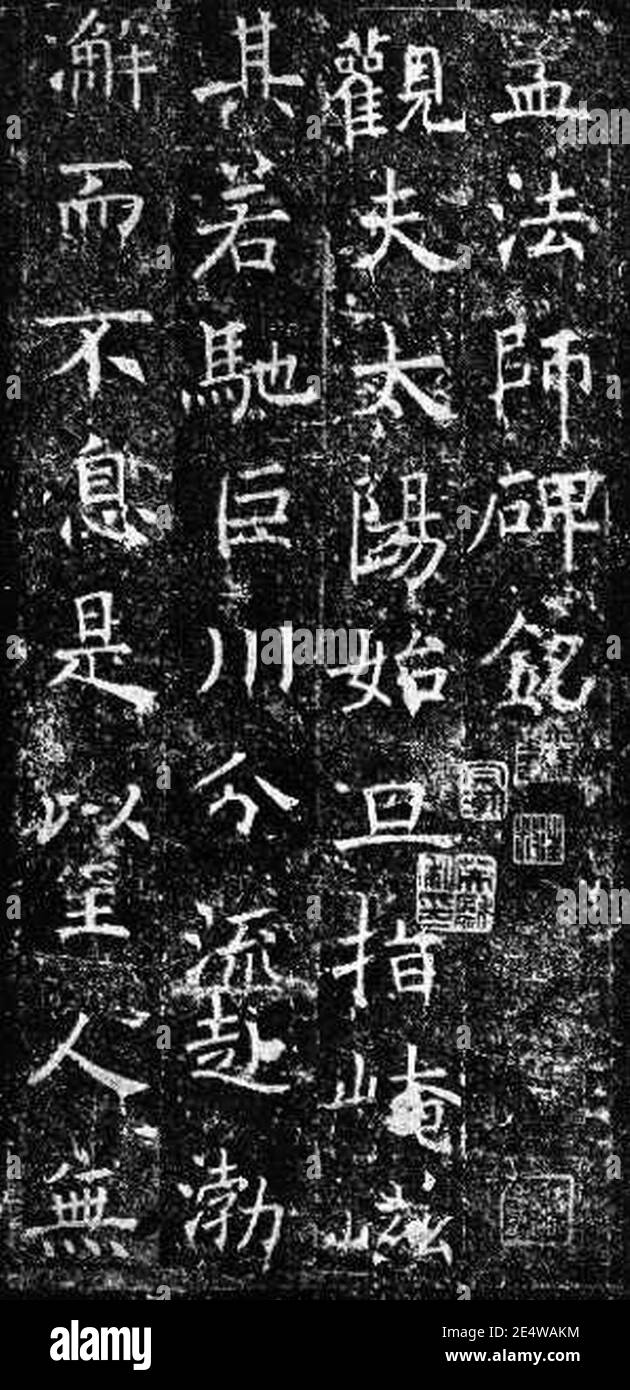 孟法師碑銘
觀夫太陽始旦指崦嵫
其若馳巨川分流赴渤
澥而不息是以至人無
alamy
alamy
Image ID: 2E4WAKM
www.alamy.com